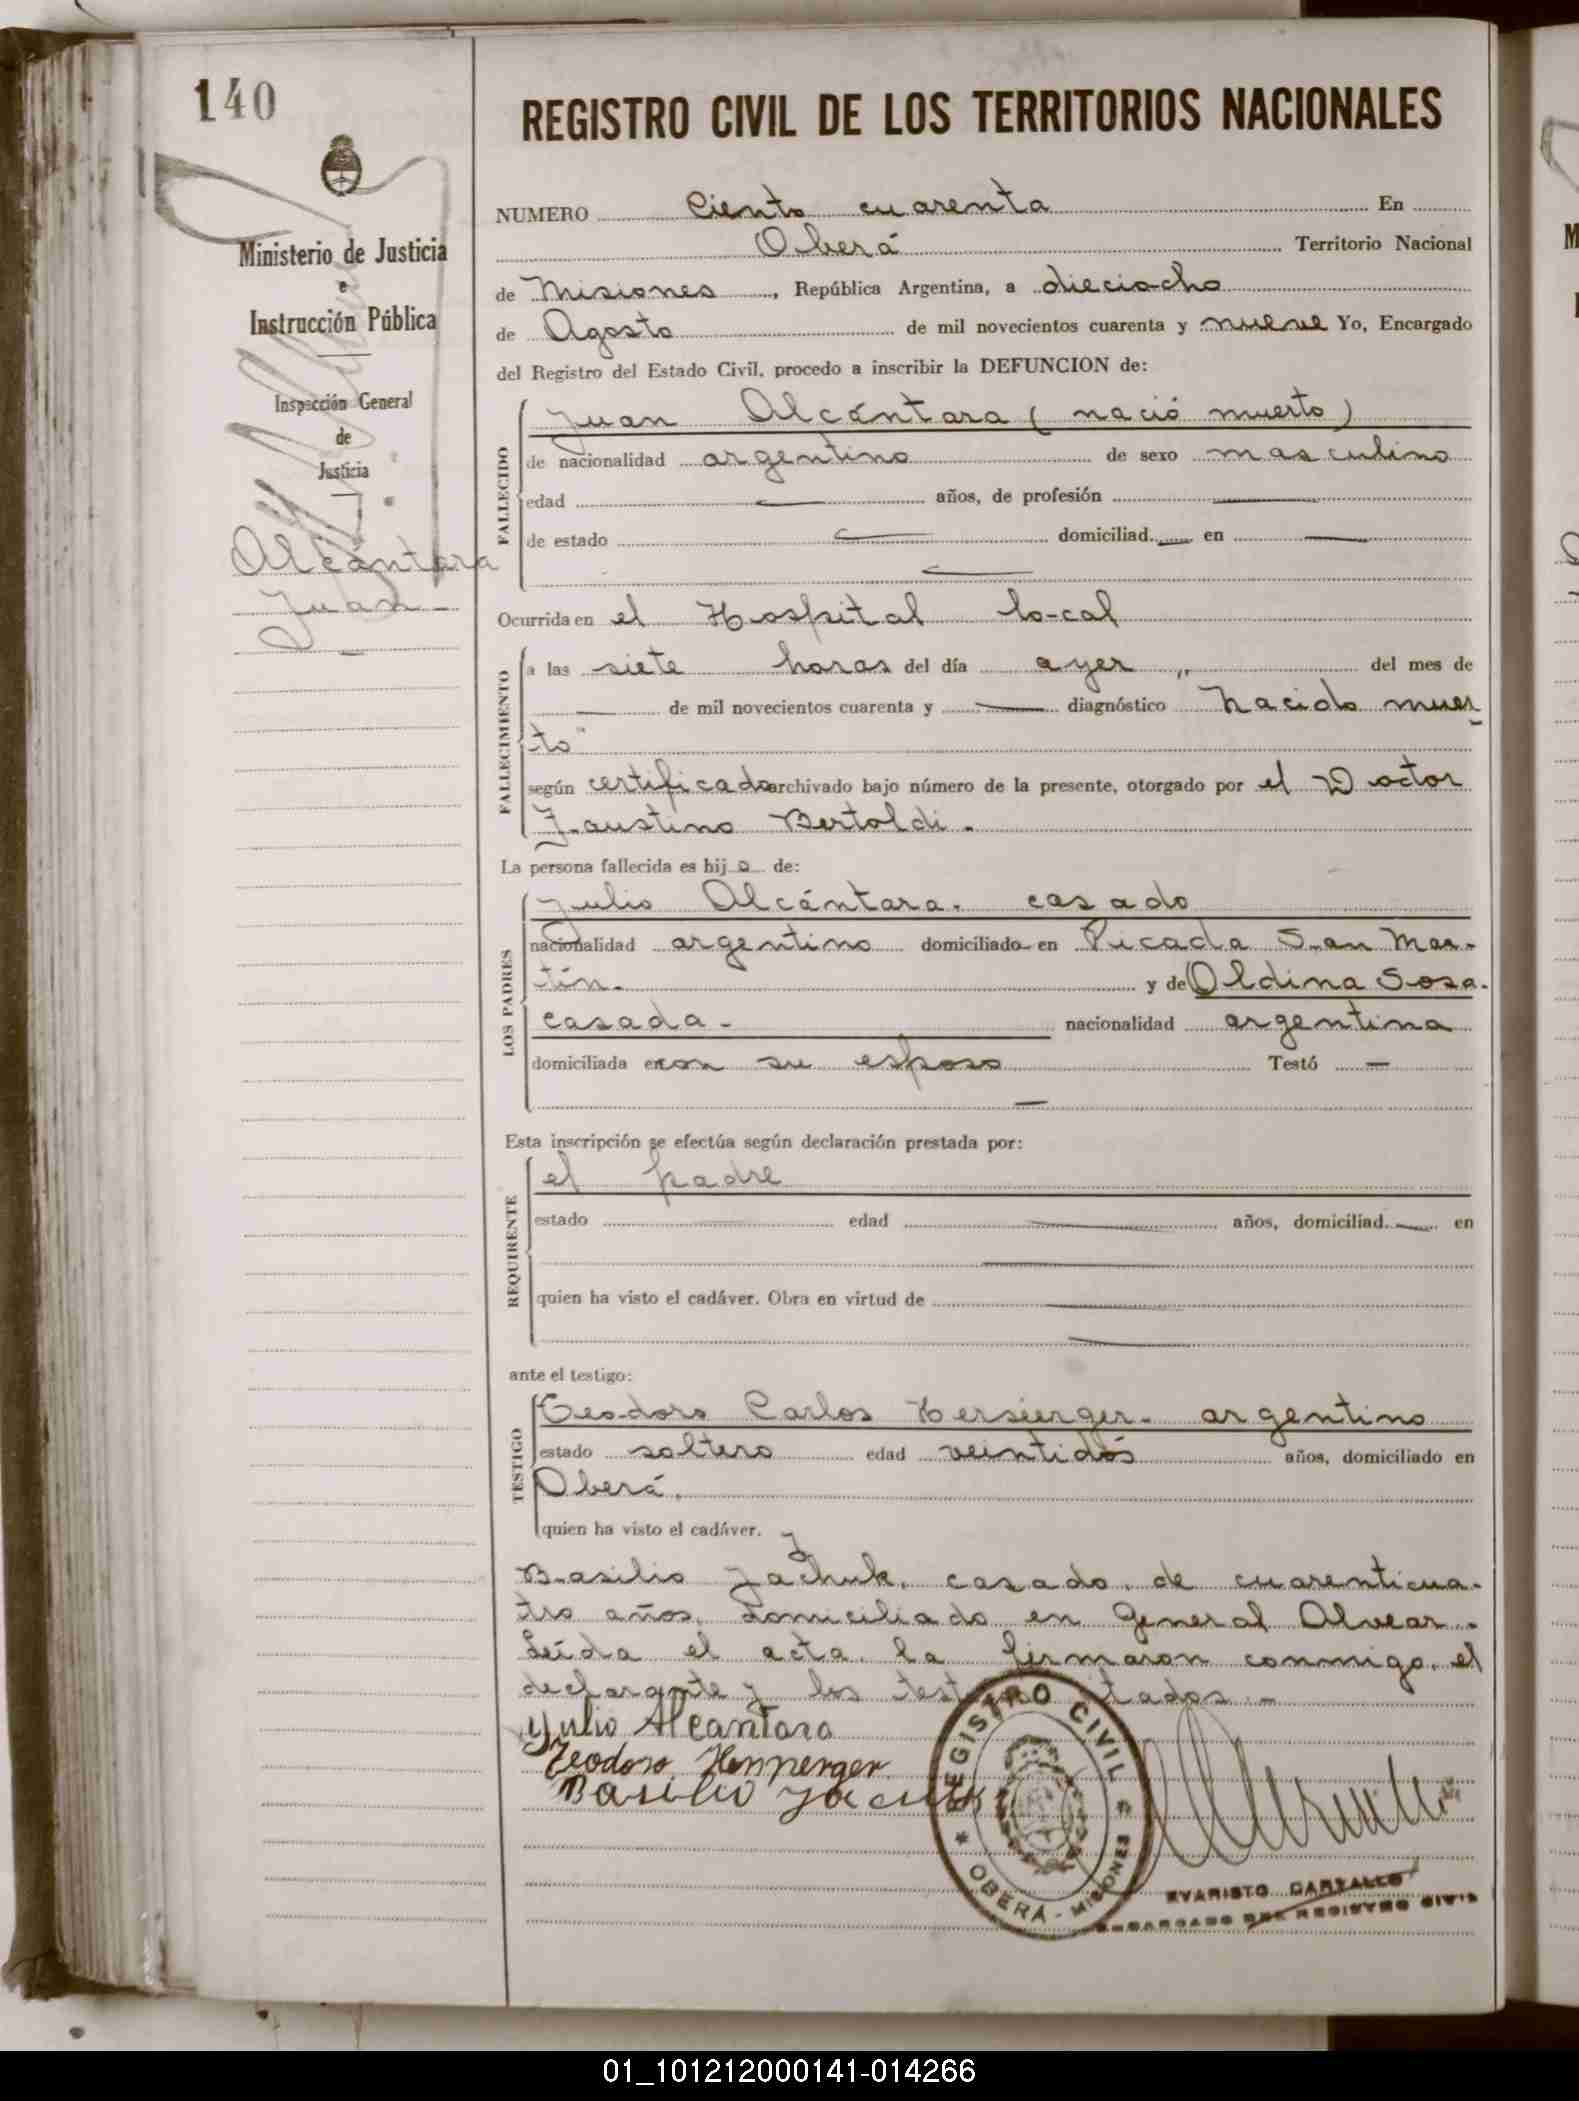 140
REGISTRO CIVIL DE LOS TERRITORIOS NACIONALES
Ministerio de Justicia
e
Instrucción Pública
Inspección General
de
Justicia
Alcántara
Juan
NUMERO Ciento cuarenta En
Oberá Territorio Nacional
de Misiones, República Argentina, a dieciocho
de Agosto de mil novecientos cuarenta y nueve Yo, Encargado
del Registro del Estado Civil, procedo a inscribir la DEFUNCION de:
FALLECIDO
Juan Alcántara (nació muerto)
de nacionalidad argentino de sexo masculino
edad — años, de profesión —
de estado — domiciliad — en —
—
Ocurrida en el Hospital local
FALLECIMIENTO
a las siete horas del día ayer,, del mes de
— de mil novecientos cuarenta y — diagnóstico nacido muer-
to"
según certificado archivado bajo número de la presente, otorgado por el Doctor
Faustino Bertoldi.
La persona fallecida es hijo de:
LOS PADRES
Julio Alcántara. casado
nacionalidad argentino domiciliado en Picada San Mar-
tín. y de Oldina Sosa.
casada- nacionalidad argentina
domiciliada en con su esposo Testó —
—
Esta inscripción se efectúa según declaración prestada por:
REQUIRENTE
el padre
estado edad — años, domiciliad — en
—
quien ha visto el cadáver. Obra en virtud de —
—
ante el testigo:
TESTIGO
Teodoro Carlos argentino
estado soltero edad veintidós años, domiciliado en
Oberá.
quien ha visto el cadáver. y
Basilio Jachuk, casado, de cuarenticua-
tro años, domiciliado en General Alvear.
Leída el acta, la firmaron conmigo, el
declarante y los testigos citados.-
Julio Alcantara
Teodoro
Basilio
REGISTRO CIVIL
OBERÁ - MISIONES
EVARISTO CARVALLO
ENCARGADO DEL REGISTRO CIVIL
01_101212000141-014266